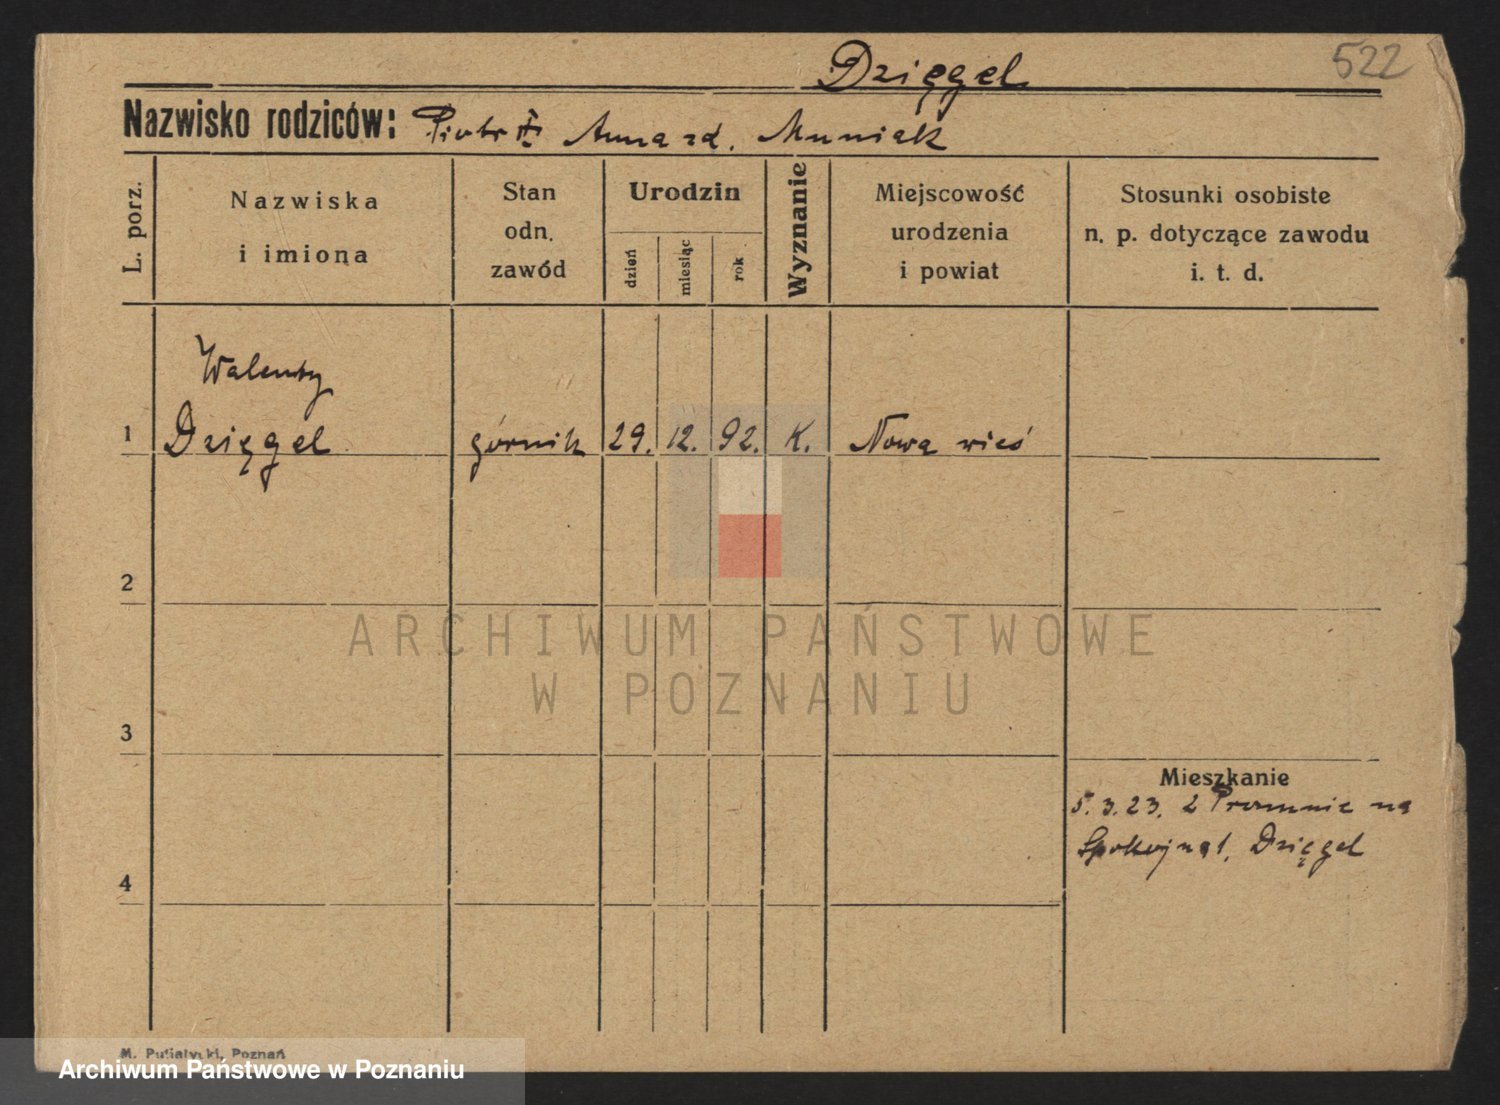 Dzięgel
522
Nazwisko rodziców: Piotr i Anna zd. Muniak
L. porz.
Nazwiska
i imiona
Stan
odn.
zawód
Urodzin
dzień
miesiąc
rok
Wyznanie
Miejscowość
urodzenia
i powiat
Stosunki osobiste
n. p. dotyczące zawodu
i. t. d.
Walenty
1 Dzięgel górnik 29. 12. 92. K. Nowa wieś
2
ARCHIWUM PAŃSTWOWE
W POZNANIU
3
Mieszkanie
5.3.23. z Promnic na
Spokojna 1. Dzięgel
4
M. Putiatycki, Poznań
Archiwum Państwowe w Poznaniu